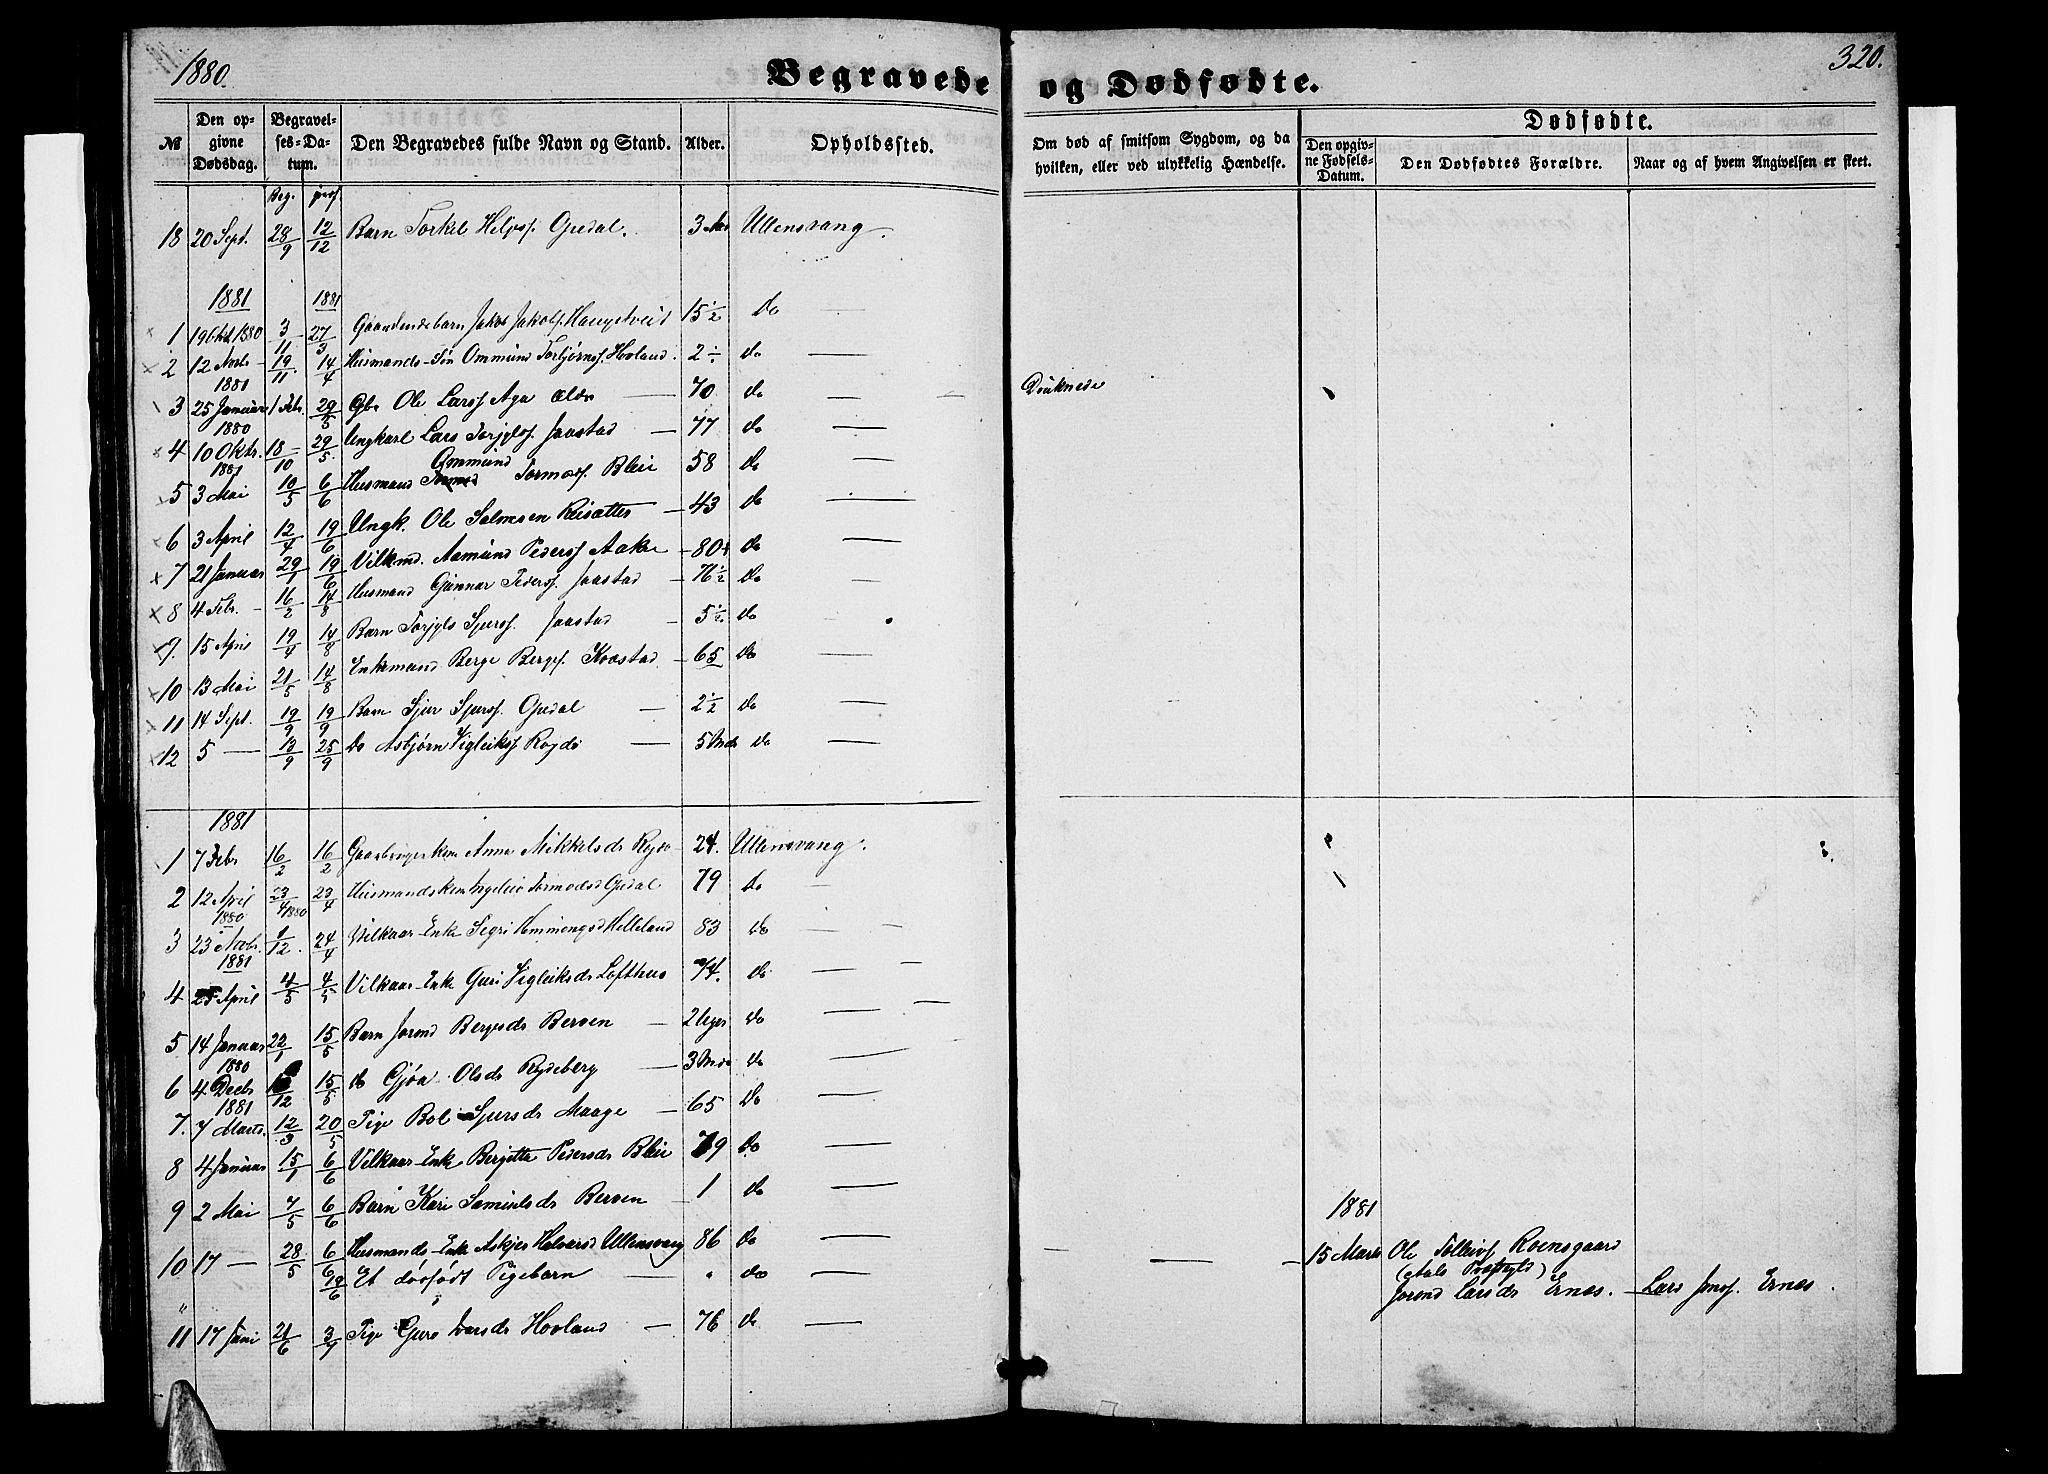 1880.
Begravede og Dødfødte.
320.
№
Den opgivne Dødsdag.
Begravelses-Datum.
Den Begravedes fulde Navn og Stand.
Alder.
Opholdssted.
Om død af smitsom Sygdom, og da hvilken, eller ved ulykkelig Hændelse.
Dødfødte.
Den opgivne Fødsels-Datum.
Den Dødfødtes Forældre.
Naar og af hvem Angivelsen er skeet.
Beg.
18 20 Sept. 28/9 12/12 Barn Torkel Heljes. Opedal. 3 Ullensvang.
1881 1881
1 19 Okt 1880 3/11 27/3 Jakob Jakobs. 15 1/2 do —
2 12 Novb 19/11 14/4 Husmands-Søn Ommund Torbjørns. Hovland. 2 do —
1881
3 25 Januar 1 Febr. 29/5 Gbr Ole Larss Aga ældre — 70 do — Druknede
1880
4 10 Oktr. 18/10 29/5 Ungkarl Lars Jaastad — 77 do —
1881
5 3 Mai 10/5 6/6 Husmand Ommund Tormods. Bleie 58 do —
6 3 April 12/4 19/6 Ungk. Ole Salmesen Reisæter — 43 do —
7 21 Januar 29/1 19/6 Vilkmd. Aamund Pederss Aakre — 80 do —
8 4 Febr. — 16/2 14/8 Husmand Gunnar Peders. Jaastad — 76 1/2 do —
9. 15 April 19/4 14/8 Barn Torjyls Sjurss. Jaastad — 5 1/2 do
10 13 Mai 21/5 14/8 Enkemand Berge Berges. Kvæstad — 65 do —
11 14 Sept. 19/9 19/9 Barn Sjur Sjurss. Opedal — 2 1/2 do —
12 5 — 13/9 25/9 do Asbjørn Vigleikss — 5 Mdr do —
1881
1 7 Febr 16/2 16/2 Anna Mikkelsdr 24. Ullensvang.
2 12 April 23/4 23/4 Husmandskone Tormodsd Opedal 79 do —
1880 1880
3 23 Novbr. 1/12. 24/4 Vilkaar-Enke Segri Hemmingsd Helleland 83 do —
1881
4 April 4/5 4/5 Vilkaar-Enke Guri Vigleiksdr Lofthus 74. do —
5 14 Januar 22/1 15/5 Barn Jorond Bergesdr Berven — 2 Uger do —
1880
6 4 Decbr /12 15/5 do Gjøa Olsdr Rydeberg — 3 Mdr do —
1881
7. 7 Marts. 12/3 20/5 Pige Bol Sjursdr Maage — 65 do —
8 4 Januar 15/1 6/6 Vilkaar-Enke Bergette Pedersdr Bleie 79 do —
9 2 Mai 7/5 6/6 Barn Kari Samuelsdr Berven — 1 do —
1881
10 17 — 28/5 6/6 Husmands-Enke Askjer Halvarsd Ullensvang 86 do —
" 19/6 Et døsfødt Pigebarn — " do — 15 Marts Ole Tolleivs Roensgaard
(Aals Præstgld)
Jorond Larsdr Ernes. — Lars Jons. Ernes.
11 17 Juni 21/6 3/9 Pige Guro Ivarsdr Hovland — 76 do —